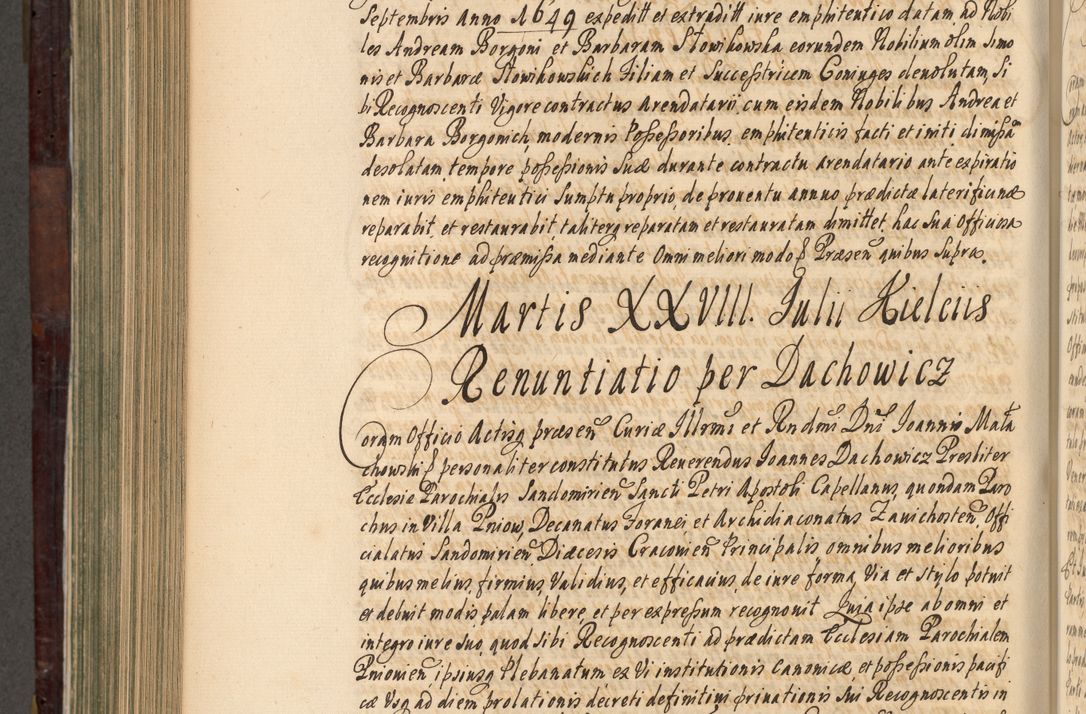 Septembris Anno 1649 expeditt et extraditt iure emphiteutico datam, ad Nobi
les Andream Borgoni et Barbaram Słowikowska eorundem Nobilium olim Simo
nis et Barbaræ Słowikowskich Filiam et Successtricem Coniuges devolutam, Si
bi Recognoscenti Vigore contractus Arendatarii cum eisdem Nobilibus Andrea et
Barbara Borgonich, modernis Possessoribus emphiteuticis facti et initi dimissam
desolatam, tempore possessionis suæ durante contractu arendatario ante expiratio
nem iuris emphiteutici Sumptu proprio, de proventu annuo prædictæ laterificinæ
reparabit, et restaurabit, taliterq reparatam et restauratam dimittet, hac Sua Officiosa
recognitione ad præmissa mediante Omni meliori modo p Præsen quibus Supra.
Martis XXVIII. Iulii Kielciis
Renuntiatio per Dachowicz
Coram Officio Actisq præsen Curiæ Illrmi et Rndmi Dni Ioannis Mała
chowski p personaliter constitutus Reverendus Ioannes Dachowicz Presbiter
Ecclesiæ Parochialis Sandomirien Sancti Petri Apostoli Capellanus, quondam Paro
chus in Villa Pniow, Decanatus Foranei et Archidiaconatus Zawichosten, Offi
cialatus Sandomirien Diæcesis Cracovien Principalis, omnibus melioribus
quibus melius, firmius, Validius, et efficacius de iure forma, Via et Stylo potuit
et debuit modis palam libere, et per expressum recognovit Quia ipse ab omni et
integro iure suo, quod Sibi Recognoscenti ad prædictam Ecclesiam Parochialem
Pniovien ipsiusq Plebanatum ex Vi institutionis canonicæ, et possessionis pacifi
cæ Usq ad diem prolationis decreti definitivi privationis sui Recognoscentis in